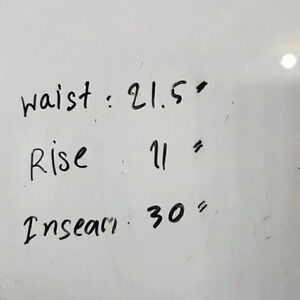 Waist : 21.5"
Rise : 11"
Inseam : 30"